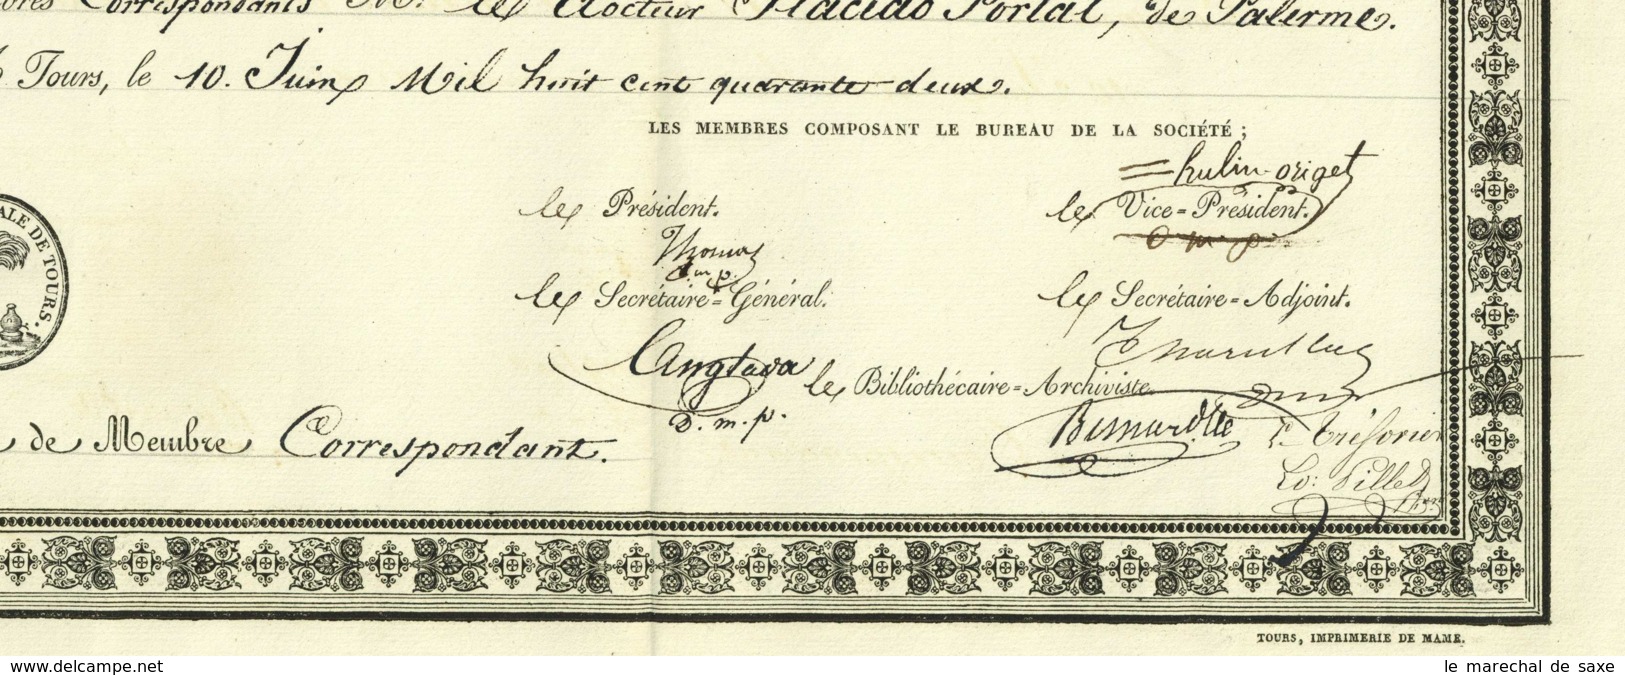 Correspondants M. le docteur Placido Portal, de Palerme.
Tours, le 10. Juin Mil huit cent quarante deux.
LES MEMBRES COMPOSANT LE BUREAU DE LA SOCIÉTÉ ;
=hulin origet
le Président. le Vice=Président.
Thomas
d. m. p. d. m. p.
le Secrétaire=Général. le Secrétaire=Adjoint.
ALE DE TOURS.
Anglada
le Bibliothécaire=Archiviste
D. m. p.
de Membre Correspondant. l. trésorier
TOURS, IMPRIMERIE DE MAME.
le marechal de saxe
www.delcampe.net